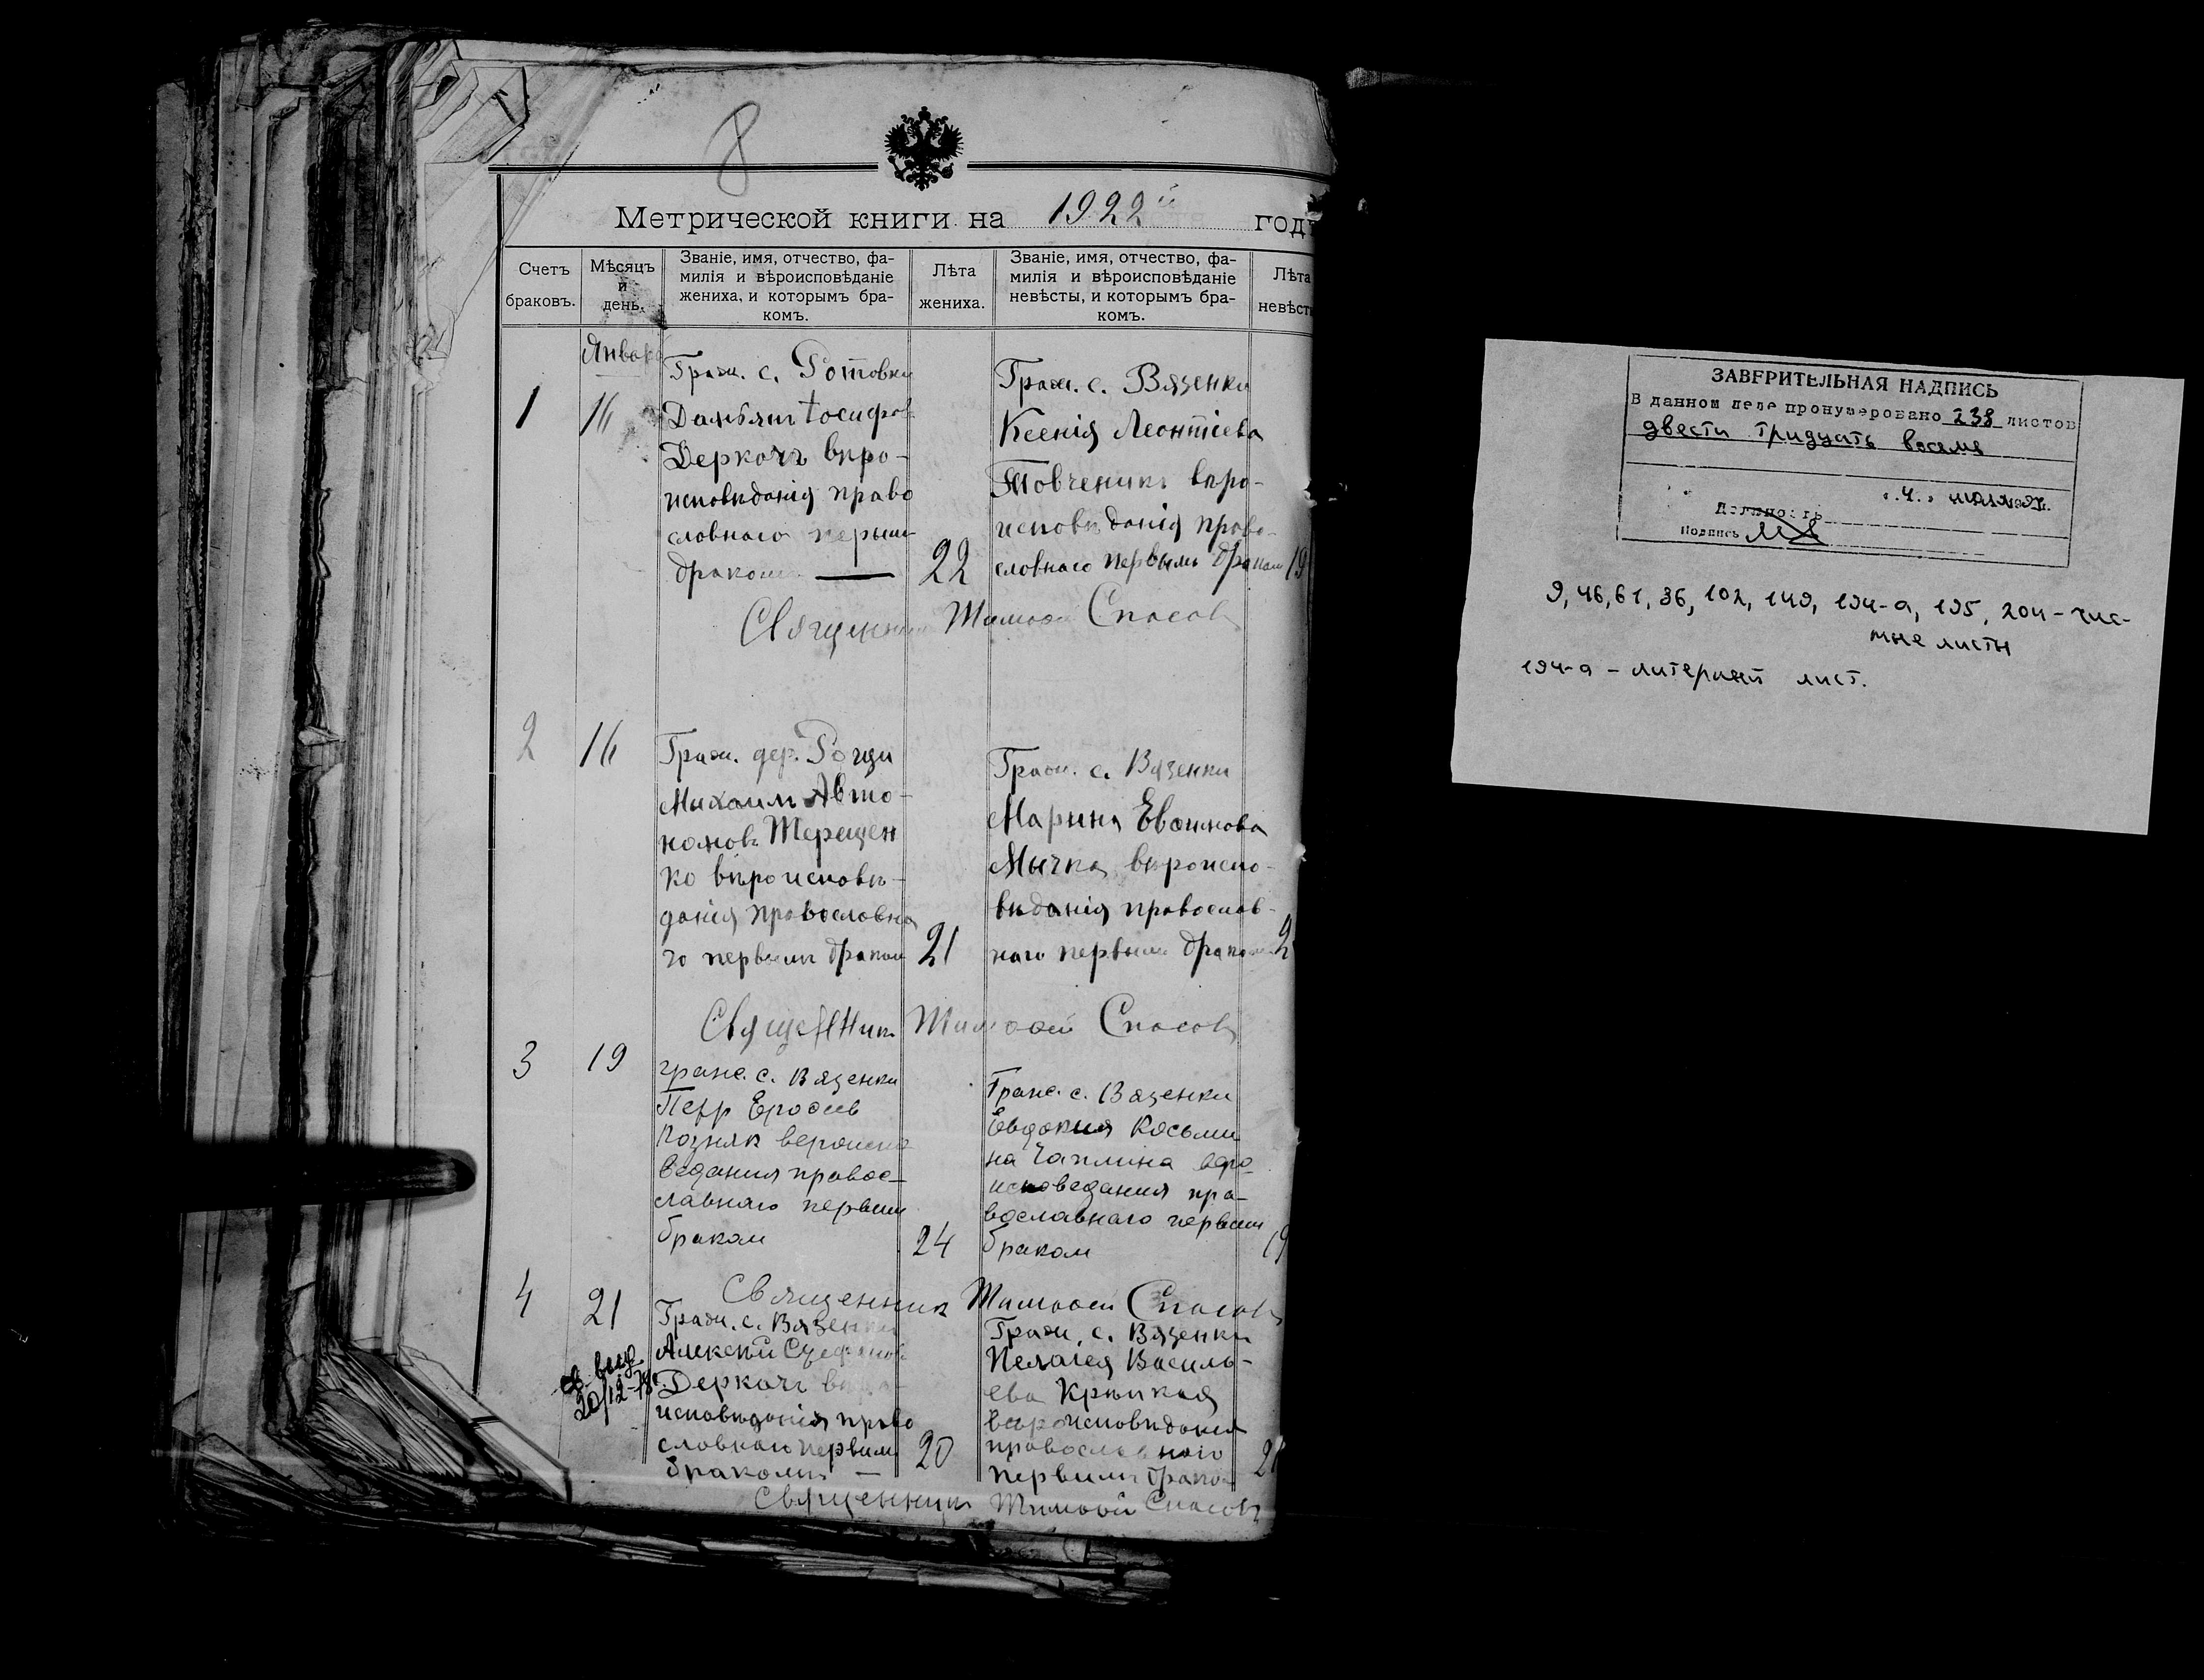 8
Метрической книги на 1922й годъ
Счетъ браковъ.
Мѣсяцъ и день.
Званіе, имя, отчество, фа-
милія и вѣроисповѣданіе
жениха, и которымъ бра-
комъ.
Лѣта жениха.
Званіе, имя, отчество, фа-
милія и вѣроисповѣданіе
невѣсты, и которымъ бра-
комъ.
Лѣта невѣсты
Январь
1
16
Граж. с.
Деркачъ вѣро-
исповѣданія право
славнаго первым
бракомъ
22
Граж. с. Вязенки
Ксенія Леонтіева
Товченикъ вѣро-
исповѣданія право-
славнаго первымъ браком
19
Священник Тимофей Спасовъ
2
16
Граж. дер. Рощи
Михаилъ Авто-
номовъ Терещен
ко вѣроисповѣ-
данія православна
го первымъ браком
21
Граж. с. Вязенки
Марина
Мычка вѣроиспо-
вѣданія православ-
наго первымъ браком
2
Священникъ Тимофей Спасовъ
3
19
граж. с. Вязенки
Петр Ерофеев
Позняк вероиспо
ведания правос-
лавнаго первым
браком
24
Граж. с. Вязенки
Евдокия Косьми
на Чаплина веро
исповедания пра-
вославнаго первым
браком
19
Священник Тимофей Спасовъ
4
21
св. выд
20/12-78г.
Граж. с. Вязенки
Алексѣй Стефанов
Деркачъ вѣро-
исповѣданія право
славнаго первым
бракомъ —
20
Граж. с. Вязенки
Пелагея Василь-
ева Крыцкая
вѣроисповѣдания
православнаго
первымъ брако
2
Священникъ Тимофей Спасовъ
ЗАВЕРИТЕЛЬНАЯ НАДПИСЬ
В данном деле пронумеровано 238 листов
двести тридцать восемь
Должность
Подпись
9, 46, 61, 86, 102, 149, 194-а, 195, 204 - чис-
тые листы
194-а - литерный лист.